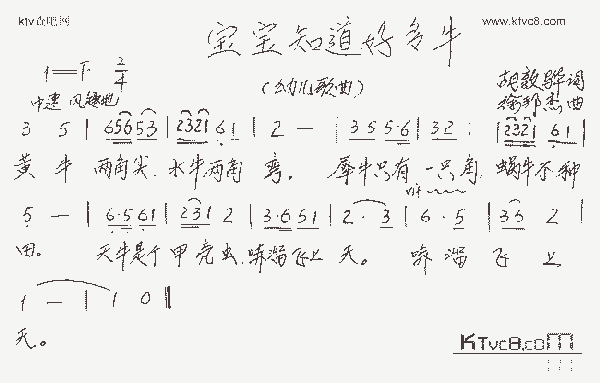 ktv点吧网
www.ktvc8.com
宝宝知道好多牛
1=F 2/4
(幼儿歌曲)
中速 风趣地
胡敦骅 词
徐邦杰 曲
3 5 | 6 5 6 5 3 | 2 3 2 1 6 1 | 2 — | 3 5 5 · 6 | 3 2 : | 2 3 2 1 6 1 |
黄 牛 两角尖, 水牛两角 弯。 犀牛只有 一只角, 蜗牛不种
5 — | 6 · 5 6 1 | 2 3 1 2 | 3 · 6 5 1 | 2 · 3 | 6 · 5 | 3 5 2 |
田。 天牛是个 甲壳虫, 哧溜飞上 天。 哧 溜 飞 上
1 — | 1 0 ‖
天。
KTvc8.com